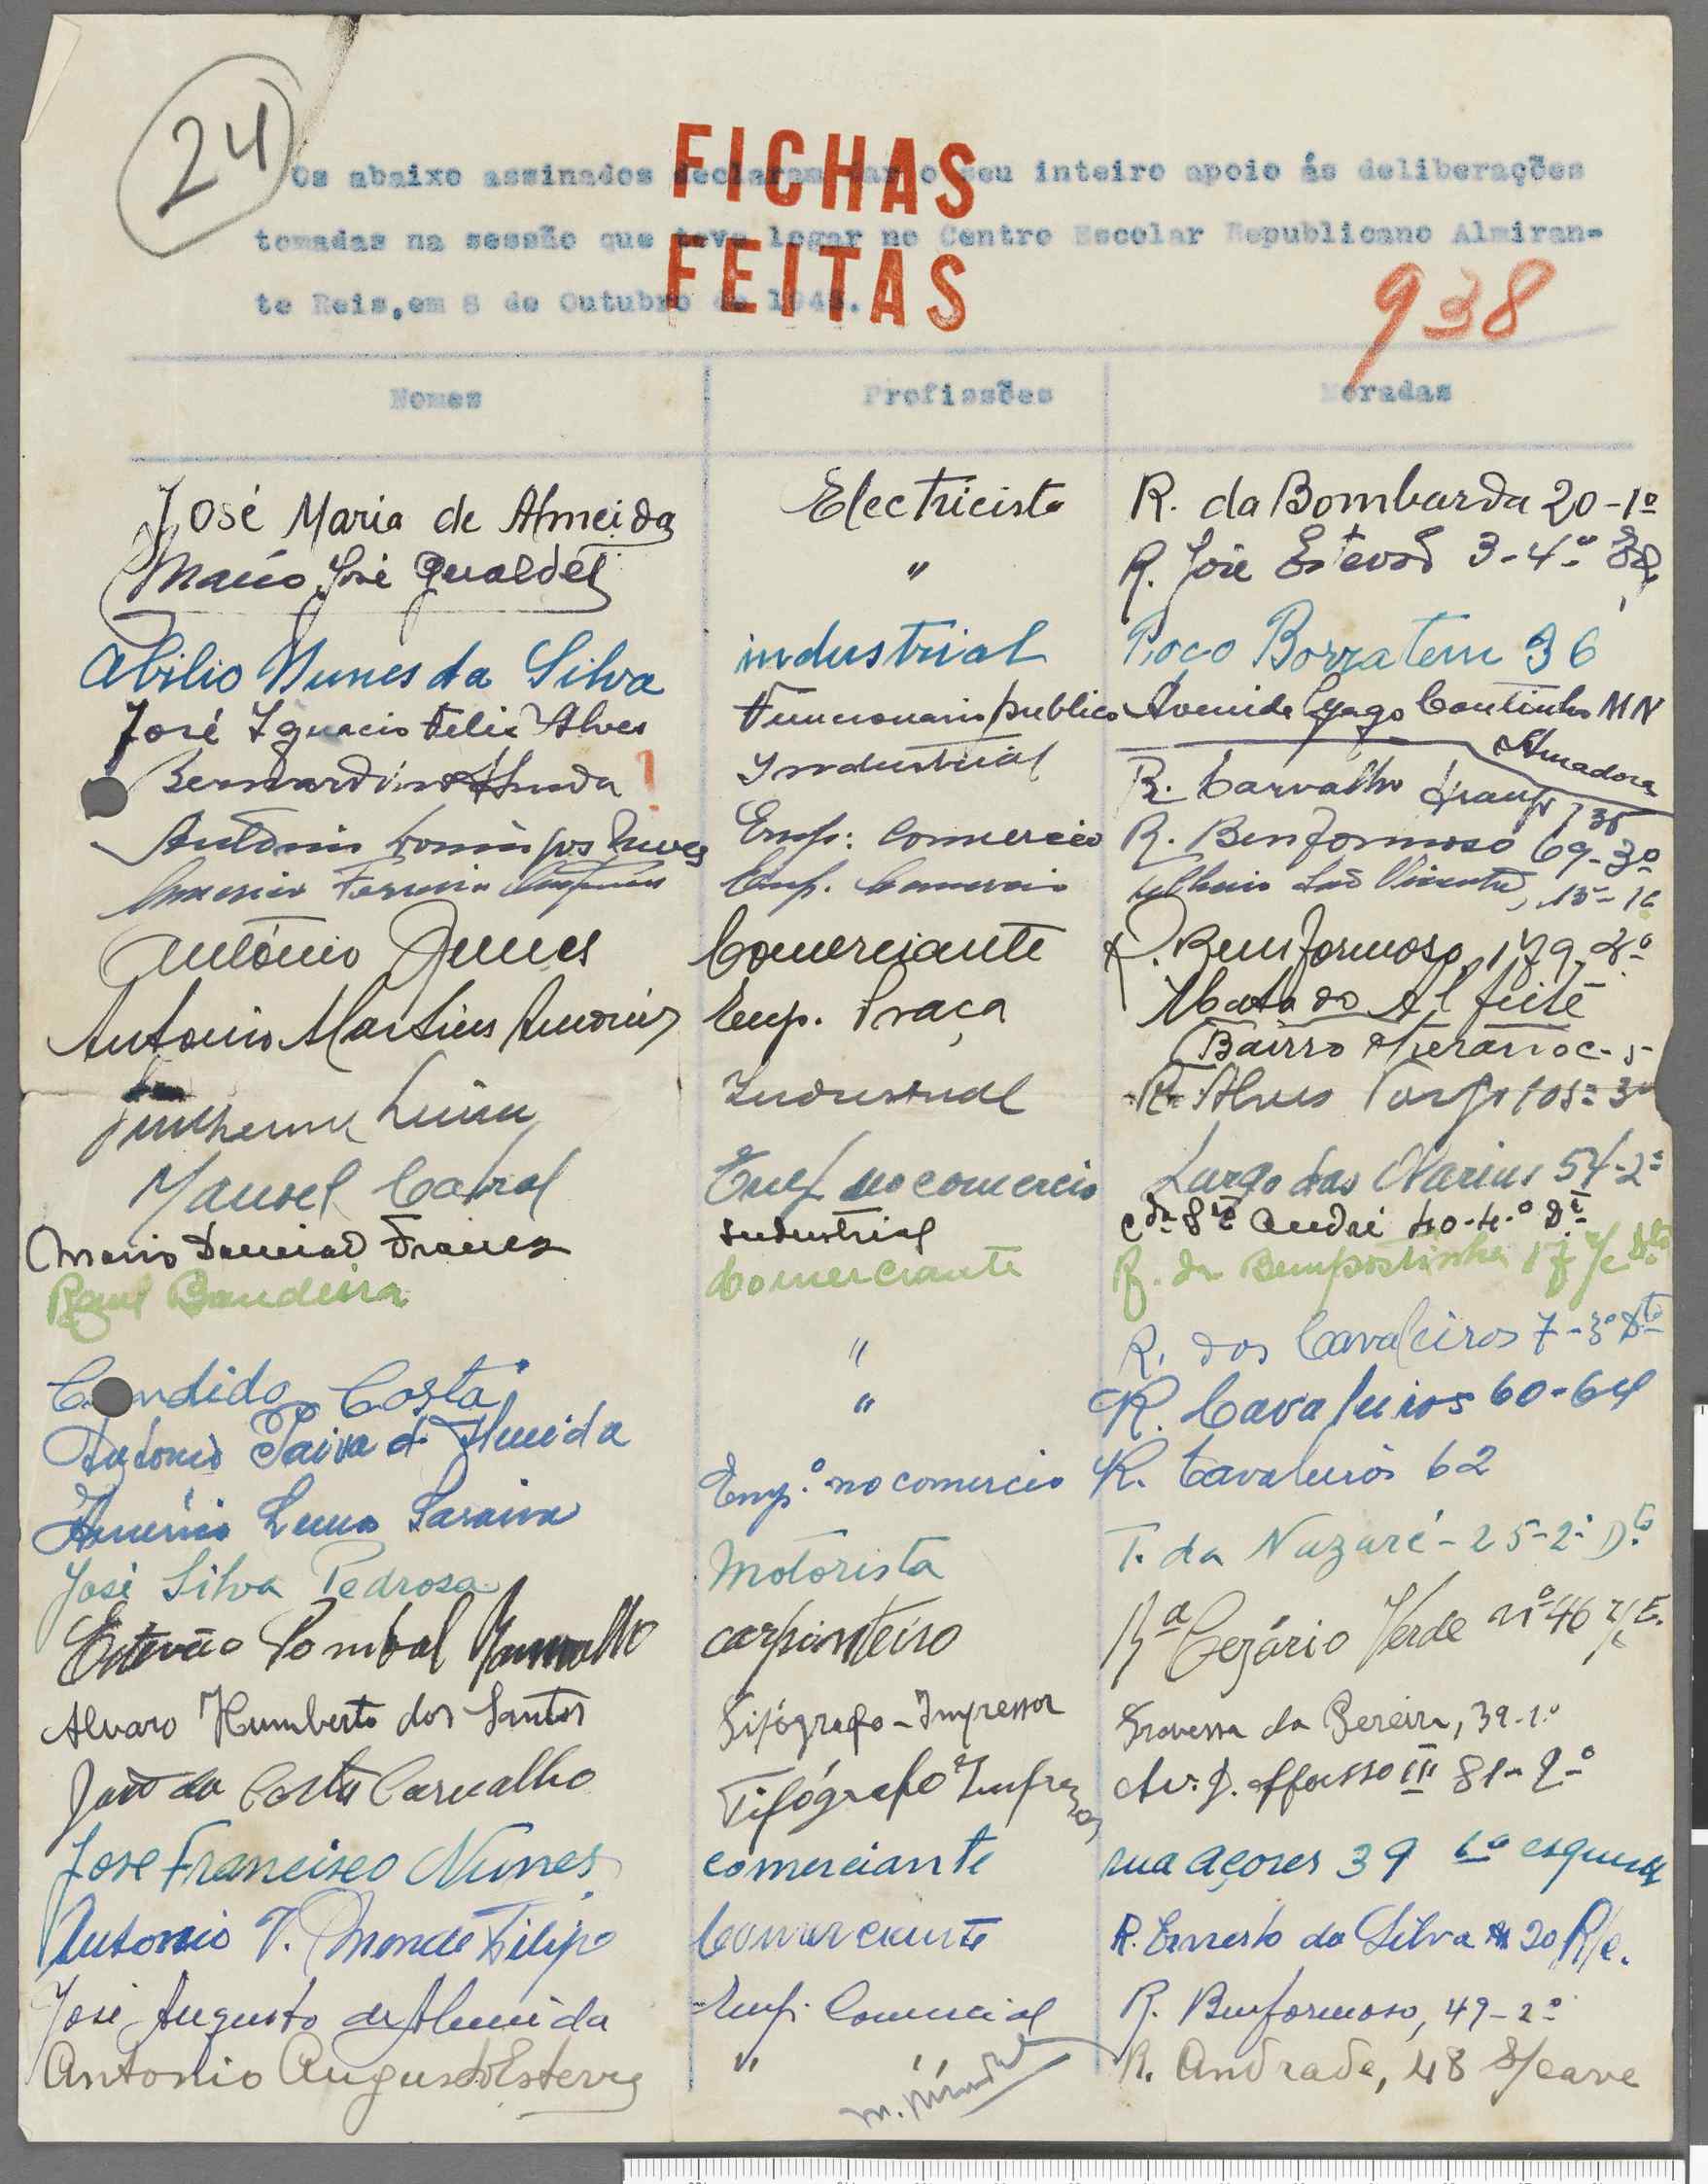 24
FICHAS
FEITAS
Os abaixo assinados declaram dar o seu inteiro apoio ás deliberações
tomadas na sessão que teve logar no Centro Escolar Republicano Almiran-
te Reis, em 8 de Outubro de 1945.
938
Nomes Profissões Moradas
José Maria de Almeida Electricista R. da Bombarda 20-1º
Mário José " R. José Estevão 3-4º
Abilio Nunes da Silva industrial Poço Borratem 36
José Ignacio Felix Alves Funcionario publico Avenida Gago Coutinho MN
Amadora
Bernardino ! Industrial R. Carvalho Araujo
António Domingos Emp: Comercio R. Benformoso 69-3º
Ferreira Emp. Comercio
António Comerciante R. Bemformoso, 179-2º
Antonio Martins Emp. Praça Mata do Alfeite
Bairro
Guilherme Industrial R. Alves Torgo 105-3º
Manuel Cabral Emp no comercio Largo das Olarias 54-2º
Mario Industrial André 40-4.º
Raul Bandeira Comerciante R. da Bempostinha 17 r/c
" R. dos Cavaleiros 7-3º Dto
Candido Costa " R. Cavaleiros 60-64
António Paiva d'Almeida
Emp.º no comercio R. Cavaleiros 62
Américo Saraiva
José Silva Pedrosa Motorista T. da Nazaré-25-2º Dto
Estevão Pombal Ramalho carpinteiro Rª Cezário Verde nº 46 r/c E.
Alvaro Humberto dos Santos Tipógrafo-Impressor Travessa da Pereira, 39-1º
João da Costa Carvalho Tipógrafo Impressor Av. D. Afonso III 81-2º
José Francisco Nunes comerciante rua açores 39
Antonio V. Filipe Comerciante R. Ernesto da Silva 20 R/c.
José Augusto de Almeida Emp. Comercial R. Benformoso, 49-2º
Antonio Augusto " " R. Andrade, 48 s/cave